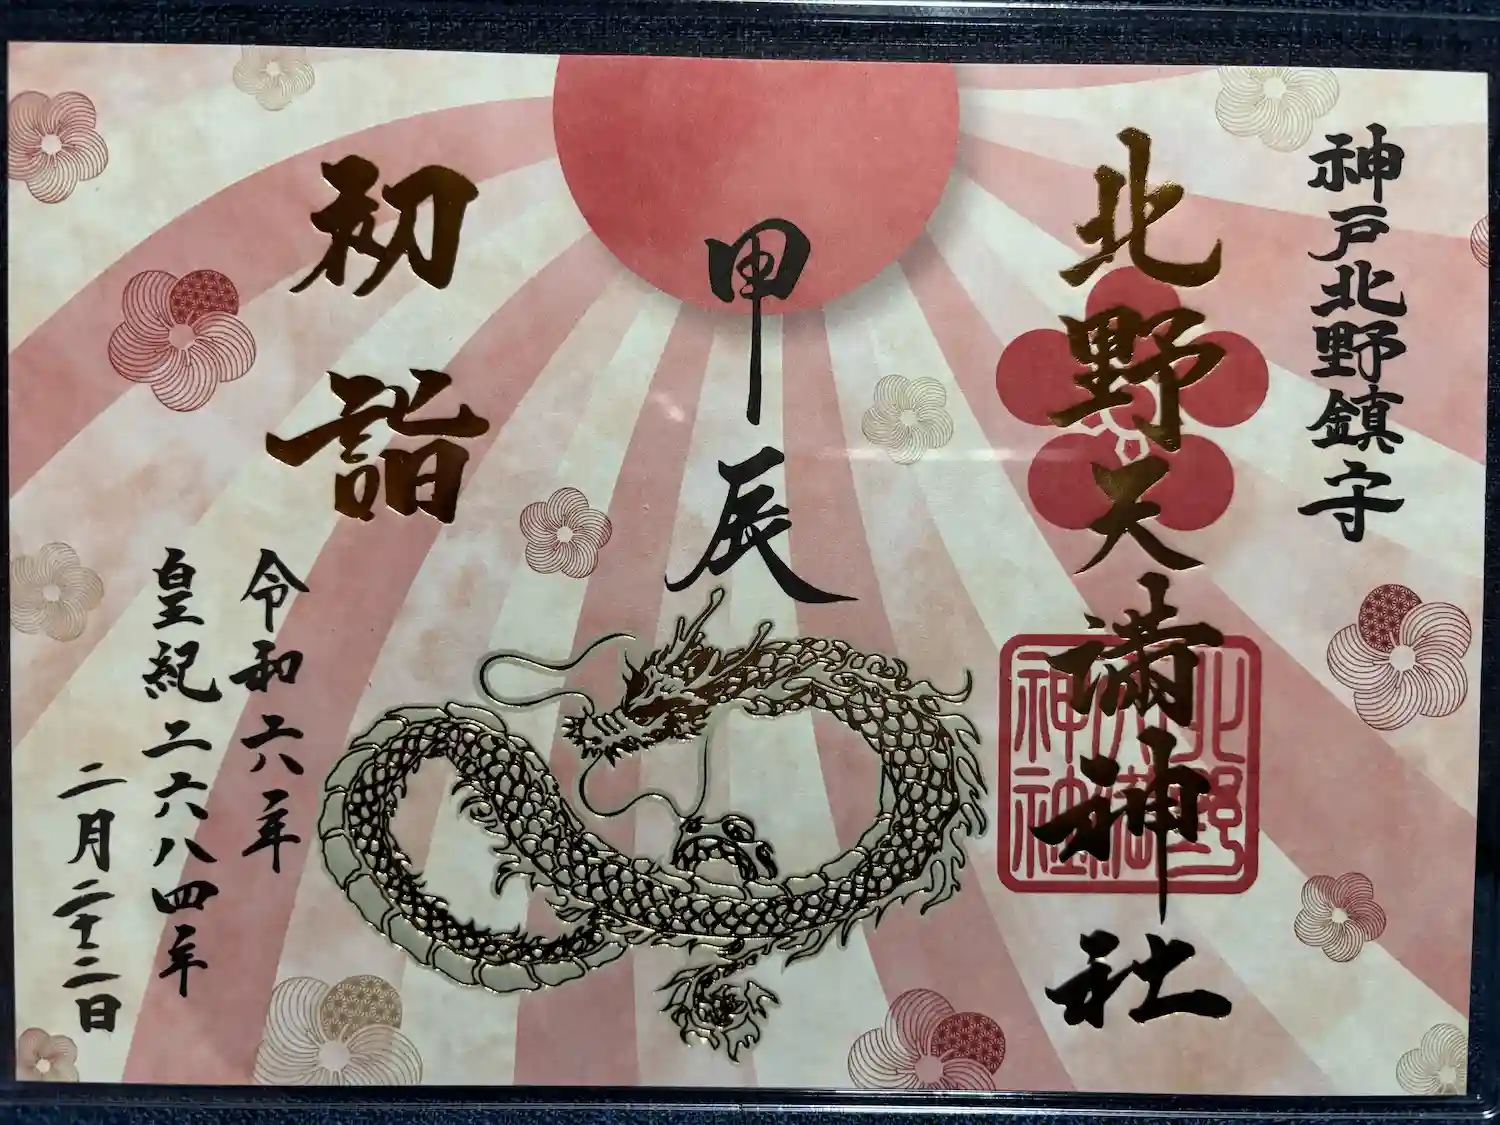 神戸北野鎮守
北野天満神社
甲辰
初詣
令和六年
皇紀二六八四年
二月二十二日